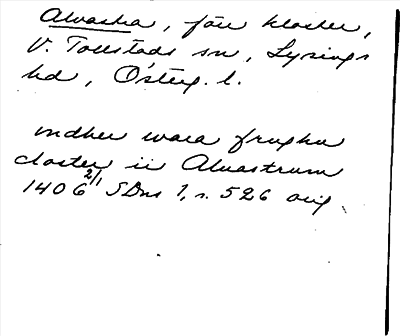 Alvastra, förr kloster,
V. Tollstads sn, Lysings
hd, Österg. l.
indher wara frughu
closter ii Aluastrum
1406 2/1 SDns 1, s. 526 orig.